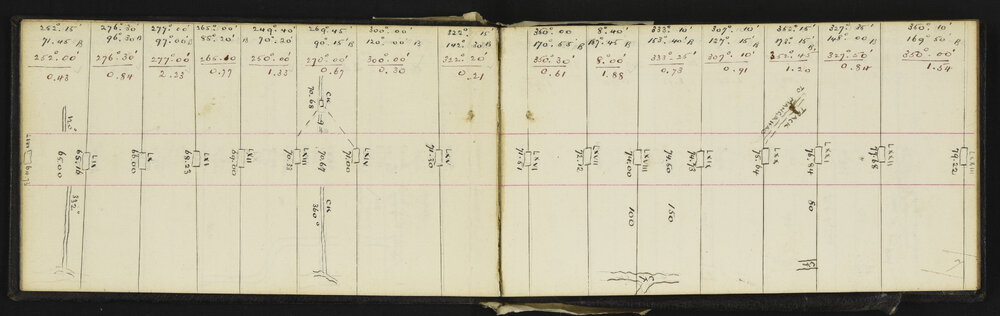 252.15' 276°.30' 277°.00' 265°.00' 249.40' 269.45 300°.00' 322°.15'
71.45 B 96.30 B 97°00' B 85°.20' B 70°.20' 90°.15' B 120°.00' B 142°.30 B
252.00' 276°.30' 277°.00' 250°.00' 270°.00' 300°.00' 322°.20'
0.43 0.84 2.23 0.77 1.33 0.67 0.30 0.21
350°.00 8°.40' 333°.10' 307°.10' 352°.15' 327°.35' 360°.10'
153°.40' B 127°.15' B 148°.00 B 169°.50' B
350°.30' 8°.00' 333°.25' 307°.10' 352°.45' 327°.50' 350°.00'
0.61 1.88 0.73 0.91 1.20 0.84 1.54
CK
70.68
TO
TRACK
65.00
LX
65.16
LX
66.00
LXI
68.23
LXII
69.00
70.33
70.67
LXIV
71.00
LXV
71.30
LXVI
71.61
LXVII
72.12
LXVIII
74.00
74.50
LXIX
74.73
LXX
75.64
LXXI
76.84
LXXII
77.68
LXXIII
79.22
332°
CK
360°
100
150
50
CK
CK